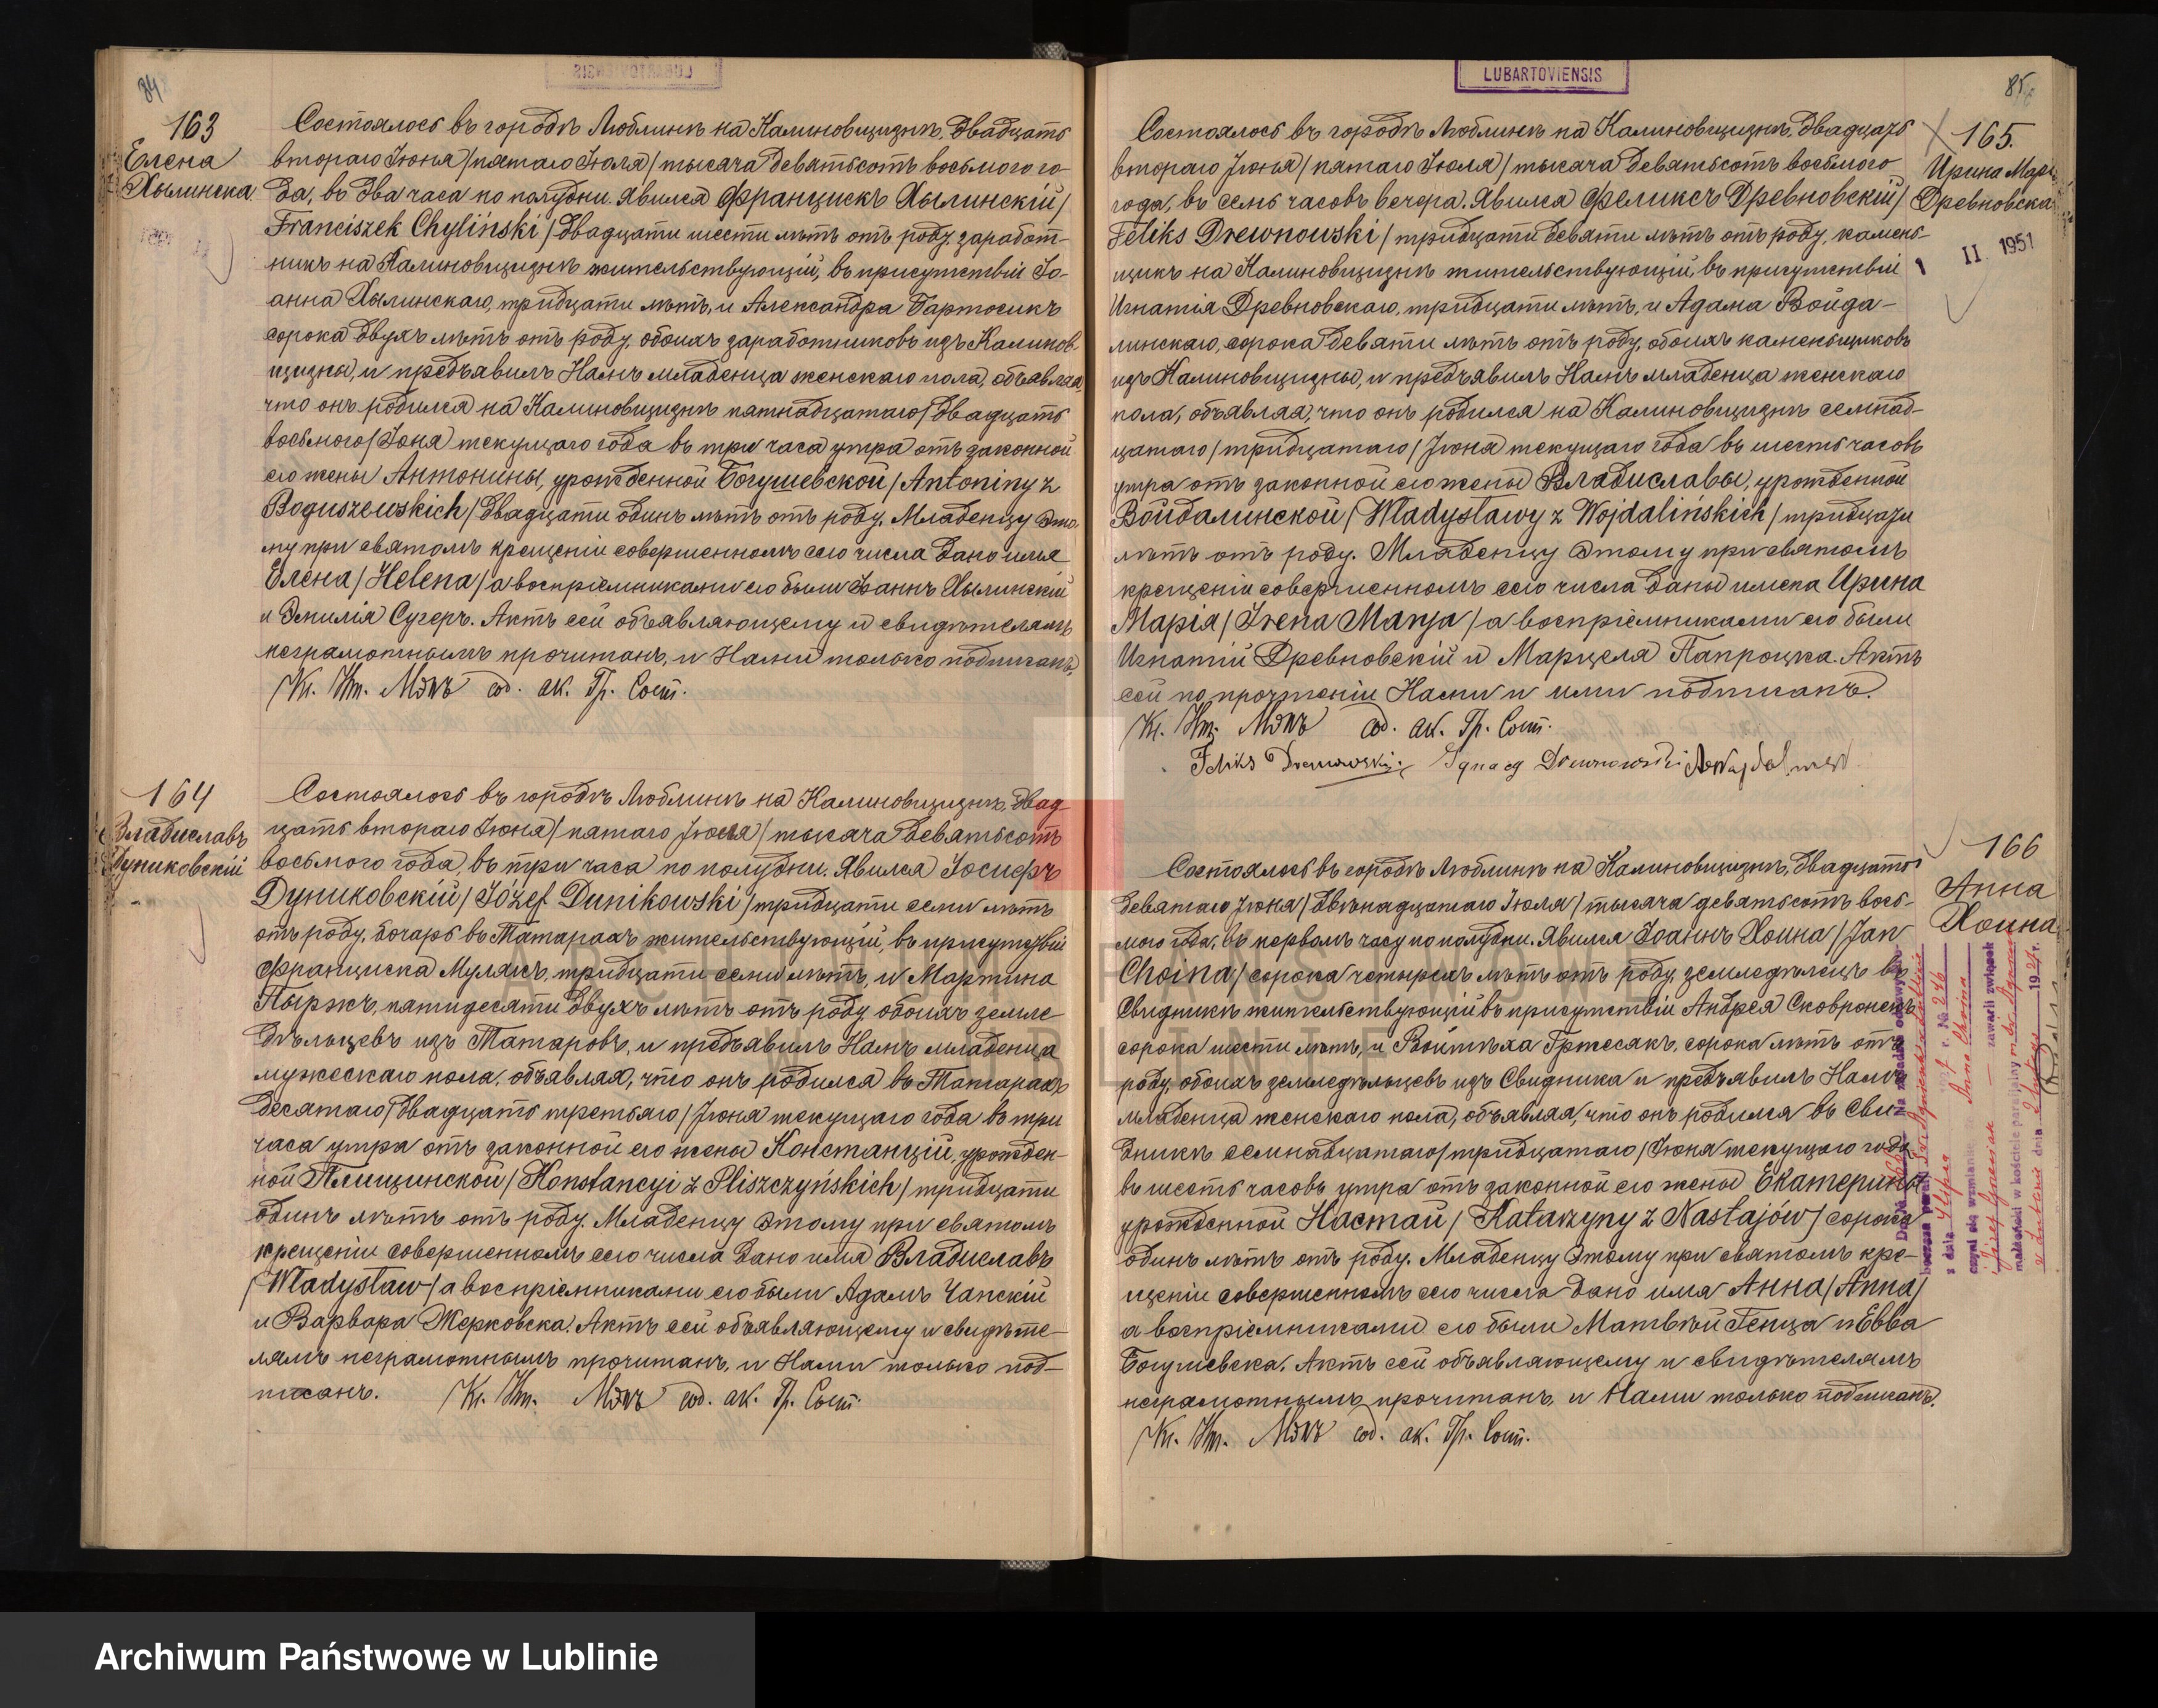 84
163
Елена
Хылинска
Состоялось въ городѣ Люблинѣ на Калиновщизнѣ, двадцать
втораго Іюня /пятаго Іюля/ тысяча девятьсотъ восьмого го-
да, въ два часа по полудни. Явился Францискъ Хылинскій /
Franciszek Chyliński / двадцати шести лѣтъ отъ роду, заработ-
никъ на Калиновщизнѣ жительствующій, въ присутствіи Іо-
анна Хылинскаго, тридцати лѣтъ, и Александра Бартосикъ
сорока двухъ лѣтъ отъ роду, обоихъ заработниковъ изъ Калинов-
щизны, и предъявилъ Намъ младенца женскаго пола, объявляя,
что онъ родился на Калиновщизнѣ пятнадцатаго /двадцать
восьмого/ Іюня текущаго года въ три часа утра отъ законной
его жены Антонины, урожденной Богушевской / Antoniny z
Boguszewskich / двадцати одинъ лѣтъ отъ роду. Младенцу это-
му при святомъ крещеніи совершенномъ сего числа дано имя
Елена / Helena / а воспріемниками его были Іоаннъ Хылинскій
и Эмилія Сугеръ. Актъ сей объявляющему и свидѣтелямъ
неграмотнымъ прочитанъ, и Нами только подписанъ.
Кс. Мэкъ сод. ак. Гр. Сост.
164
Владиславъ
Дуниковскій
Состоялось въ городѣ Люблинѣ на Калиновщизнѣ, двад-
цать втораго Іюня / пятаго Іюля / тысяча девятьсотъ
восьмого года, въ три часа по полудни. Явился Іосифъ
Дуниковскій / Józef Dunikowski / тридцати семи лѣтъ
отъ роду, бочарь въ Татарахъ жительствующій, въ присутствіи
Франциска Мулякъ, тридцати семи лѣтъ, и Мартина
Пыржъ, пятидесяти двухъ лѣтъ отъ роду, обоихъ земле-
дѣльцевъ изъ Татаровъ, и предъявилъ Намъ младенца
мужескаго пола, объявляя, что онъ родился въ Татарахъ
десятаго /двадцать третьяго/ Іюня текущаго года въ три
часа утра отъ законной его жены Констанціи, урожден-
ной Плищинской / Konstancyi z Pliszczyńskich / тридцати
одинъ лѣтъ отъ роду. Младенцу этому при святомъ
крещеніи совершенномъ сего числа дано имя Владиславъ
/ Władysław / а воспріемниками его были Адамъ Чапскій
и Варвара Жерковска. Актъ сей объявляющему и свидѣте-
лямъ неграмотнымъ прочитанъ, и Нами только под-
писанъ. Кс. Мэкъ сод. ак. Гр. Сост.
LUBARTOVIENSIS
85
165.
Ирина Марія
Древновска
II 1951
Состоялось въ городѣ Люблинѣ на Калиновщизнѣ, двадцать
втораго Іюня / пятаго Іюля / тысяча девятьсотъ восьмого
года, въ семь часовъ вечера. Явился Феликсъ Древновскій /
Feliks Drewnowski / тридцати девяти лѣтъ отъ роду, камень-
щикъ на Калиновщизнѣ жительствующій, въ присутствіи
Игнатія Древновскаго, тридцати лѣтъ, и Адама Войда-
линскаго, сорока девяти лѣтъ отъ роду, обоихъ каменьщиковъ
изъ Калиновщизны, и предъявилъ Намъ младенца женскаго
пола, объявляя, что онъ родился на Калиновщизнѣ семнад-
цатаго / тридцатаго / Іюня текущаго года въ шесть часовъ
утра отъ законной его жены Владиславы, урожденной
Войдалинской / Władysławy z Wojdalińskich / тридцати
лѣтъ отъ роду. Младенцу этому при святомъ
крещеніи совершенномъ сего числа даны имена Ирина
Марія / Irena Marya / а воспріемниками его были
Игнатій Древновскій и Марцеля Папроцка. Актъ
сей по прочтеніи Нами и ими подписанъ.
Кс. Мэкъ сод. ак. Гр. Сост.
Feliks Drewnowski Ignacy Drewnowski
166
Анна
Хоина
Состоялось въ городѣ Люблинѣ на Калиновщизнѣ, двадцать
девятаго Іюня / двѣнадцатаго Іюля / тысяча девятьсотъ вось-
мого года, въ первомъ часу по полудни. Явился Іоаннъ Хоина / Jan
Choina / сорока четырехъ лѣтъ отъ роду, земледѣлецъ въ
Свидникѣ жительствующій въ присутствіи Андрея Сковронекъ
сорока шести лѣтъ, и Войтѣха Гржесякъ, сорока лѣтъ отъ
роду, обоихъ земледѣльцевъ изъ Свидника и предъявилъ Намъ
младенца женскаго пола, объявляя, что онъ родился въ Сви-
дникѣ семнадцатаго / тридцатаго / Іюня текущаго года
въ шесть часовъ утра отъ законной его жены Екатерины
урожденной Настай / Katarzyny z Nastajów / сорока
одинъ лѣтъ отъ роду. Младенцу этому при святомъ кре-
щеніи совершенномъ сего числа дано имя Анна / Anna /
а воспріемниками его были Матвѣй Генца и Евва
Богушевска. Актъ сей объявляющему и свидѣтелямъ
неграмотнымъ прочитанъ, и Нами только подписанъ.
Кс. Мэкъ сод. ак. Гр. Сост.
z dnia r. № 246
Anna Choina
czyni się wzmiankę zawarli związek
małżeński w kościele parafjalnym
dnia 1927 r.
ARCHIWUM PAŃSTWOWE
W LUBLINIE
Archiwum Państwowe w Lublinie